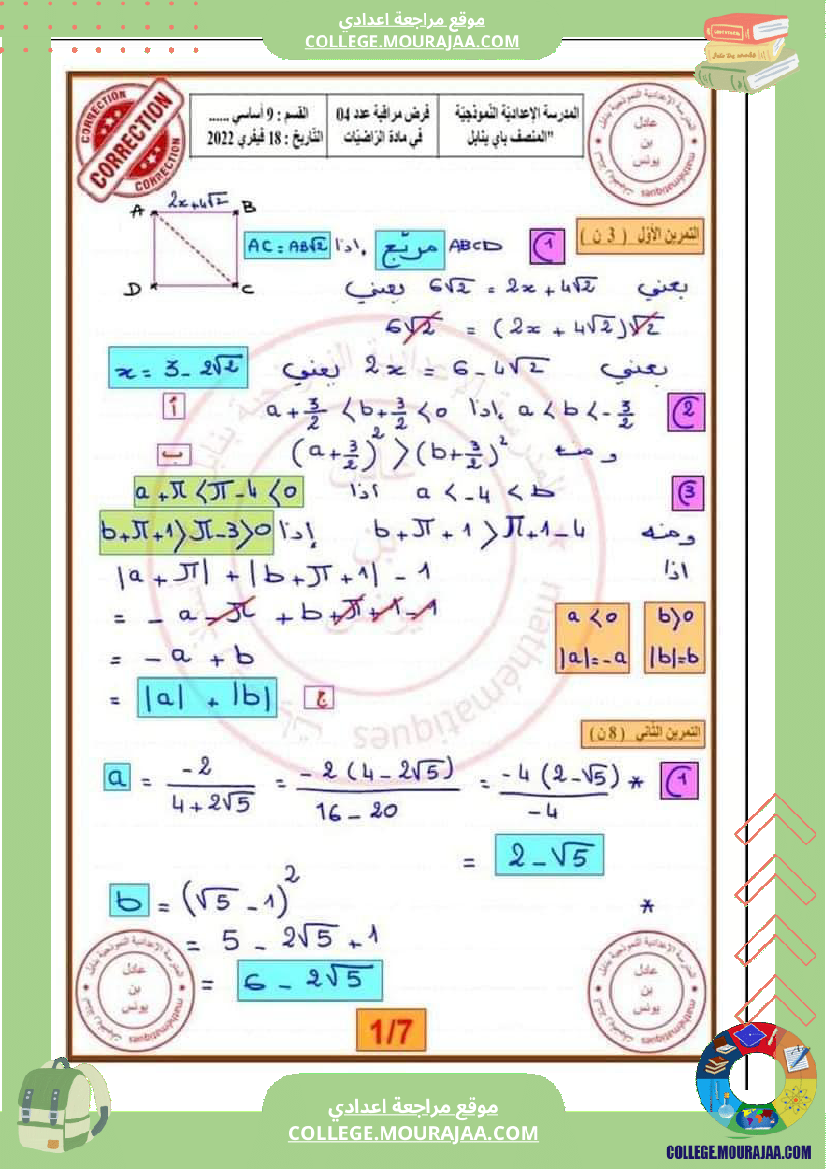 موقع مراجعة اعدادي
COLLEGE.MOURAJAA.COM
CORRECTION
المدرسة الإعدادية النموذجية
"المنصف باي بنابل
فرض مراقبة عدد 04
في مادة الرياضيات
القسم : 9 أساسي ......
التاريخ : 18 فيفري 2022
عادل
بن
يونس
mathématiques
التمرين الأول ( 3 ن )
A 2x+4√2 B
D C
1) ABCD مربع إذا AC = AB√2
يعني 6√2 = 2x + 4√2 يعني
6√2 = (2x + 4√2)√2
يعني 2x = 6 - 4√2 يعني x = 3 - 2√2
2) a < b < -3/2 إذا a + 3/2 < b + 3/2 < 0 أ
ومنه (a + 3/2)² > (b + 3/2)² ب
3) a < -4 < b اذا a + π < π - 4 < 0
ومنه b + π + 1 > π + 1 - 4 إذا b + π + 1 > π - 3 > 0
اذا |a + π| + |b + π + 1| - 1
= - a - π + b + π + 1 - 1
= - a + b
= |a| + |b| ج
a < 0
|a| = -a
b > 0
|b| = b
التمرين الثاني ( 8 ن )
1) * a = -2/(4 + 2√5) = -2(4 - 2√5)/(16 - 20) = -4(2 - √5)/-4
= 2 - √5
* b = (√5 - 1)²
= 5 - 2√5 + 1
= 6 - 2√5
عادل
بن
يونس
mathématiques
عادل
بن
يونس
mathématiques
1/7
موقع مراجعة اعدادي
COLLEGE.MOURAJAA.COM
COLLEGE.MOURAJAA.COM